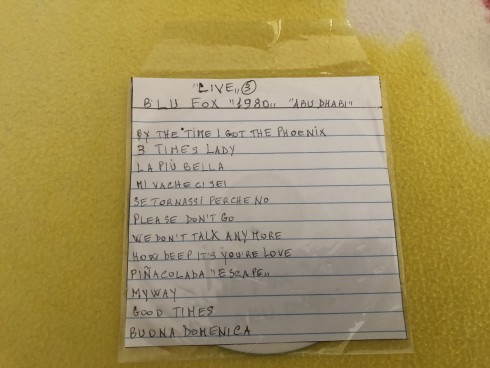 "LIVE,, ③
BLU FOX "1980,, "ABU DHABI"
BY THE TIME I GOT THE PHOENIX
3 TIMES LADY
LA PIÙ BELLA
MI VACHE CI SEI
SE TORNASSI PERCHE NO
PLEASE DON'T GO
WE DON'T TALK ANY MORE
HOW DEEP IT'S YOU'RE LOVE
PIÑACOLADA "ESCAPE,,
MY WAY
GOOD TIMES
BUONA DOMENICA